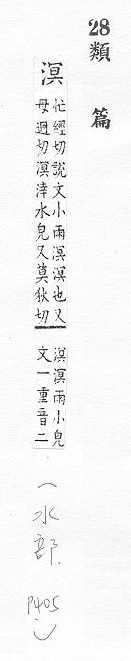 28類篇
溟
忙經切説文小雨溟溟也又
母迥切溟涬水皃又莫狄切
溟溟雨小皃
文一重音二
(水部. P405)